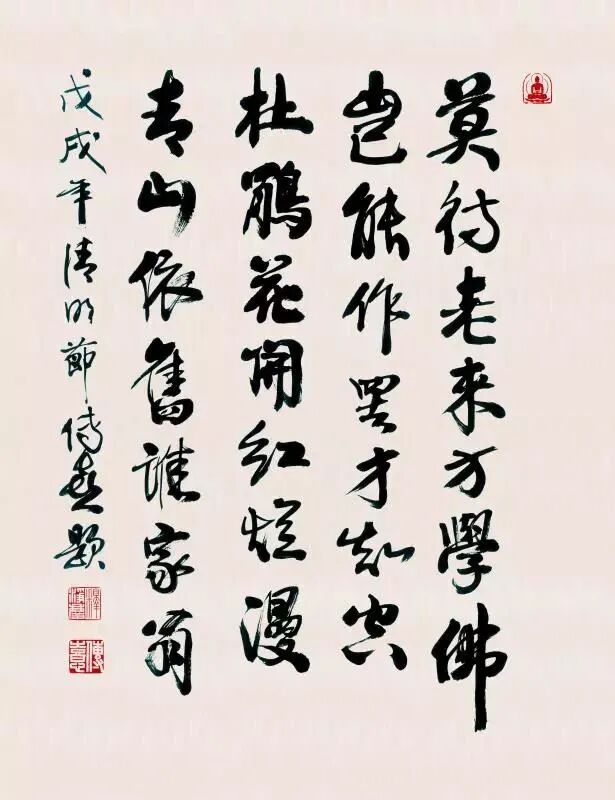 莫待老来方學佛
岂能作罢才知空
杜鹃花開红烂漫
青山依舊谁家翁
戊戌年清明節传喜题
傳喜